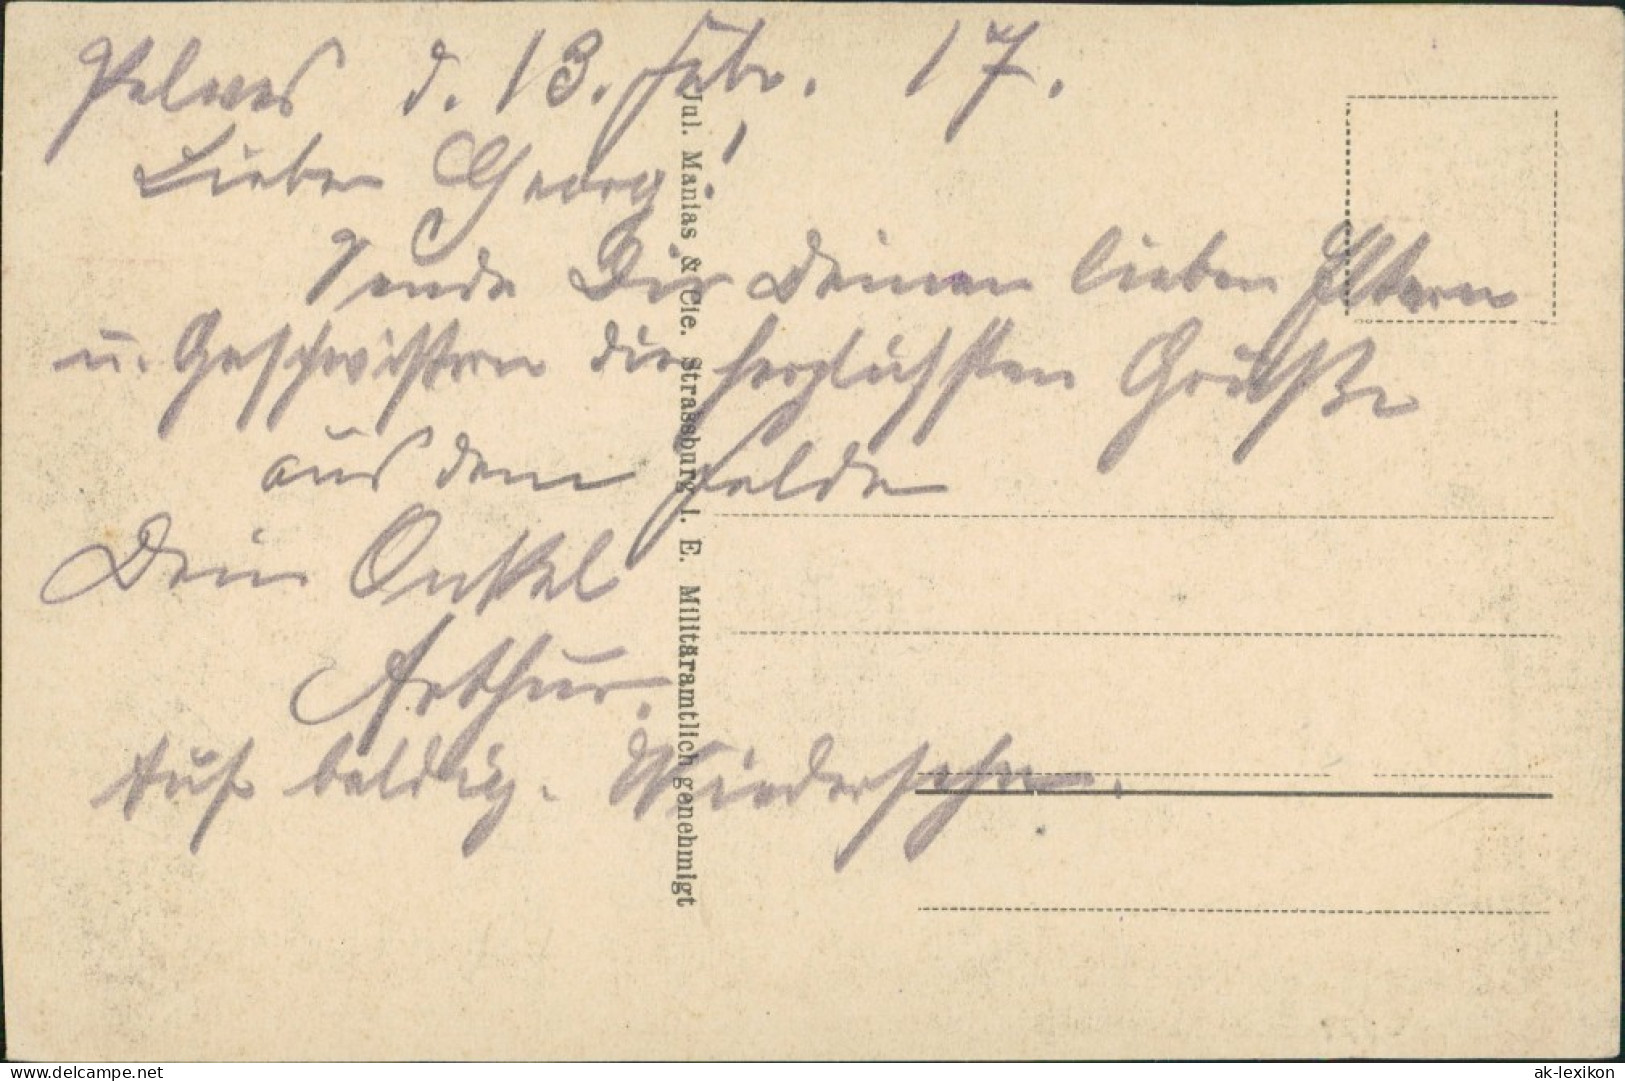 Pelves d. 13. Febr. 17.
Lieber Georg!
Sende Dir Deinen lieben Eltern
u. Geschwistern die herzlichsten Grüße
aus dem Felde
Dein Onkel
Arthur.
Auf baldig. Wiedersehn.
Jul. Manias & Cie. Strassburg i. E. Militäramtlich genehmigt
the best of collecting since 2000
ak-lexikon